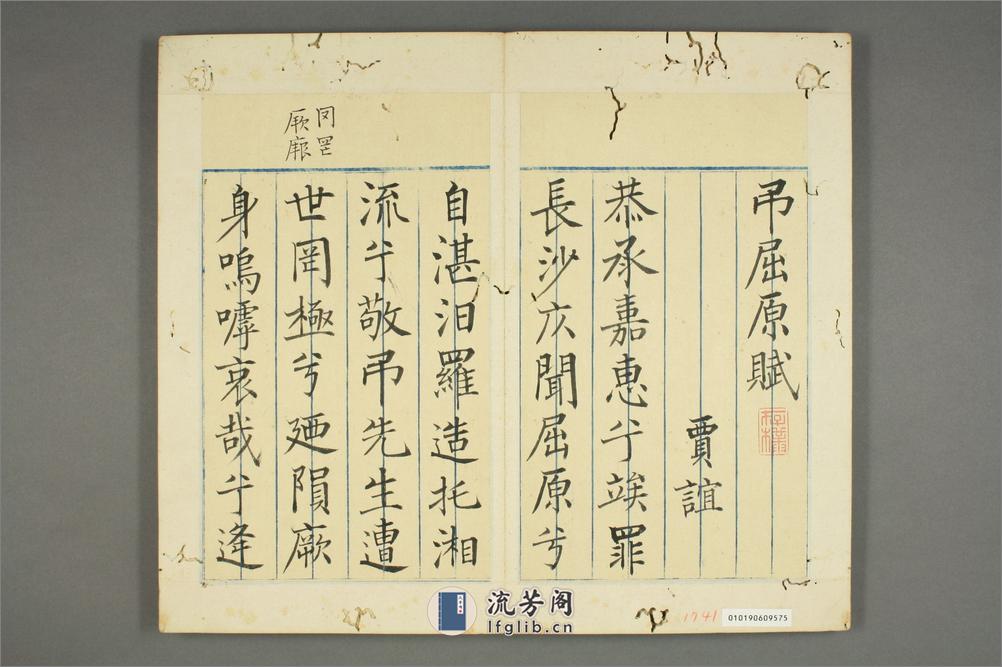 吊屈原賦
賈誼
恭承嘉惠兮竢罪
長沙仄聞屈原兮
自湛汨羅造托湘
流兮敬吊先生遭
世罔極兮廼隕厥
身嗚嘑哀哉兮逢
罡
厥
流芳阁
lfglib.cn
1741
010190609575